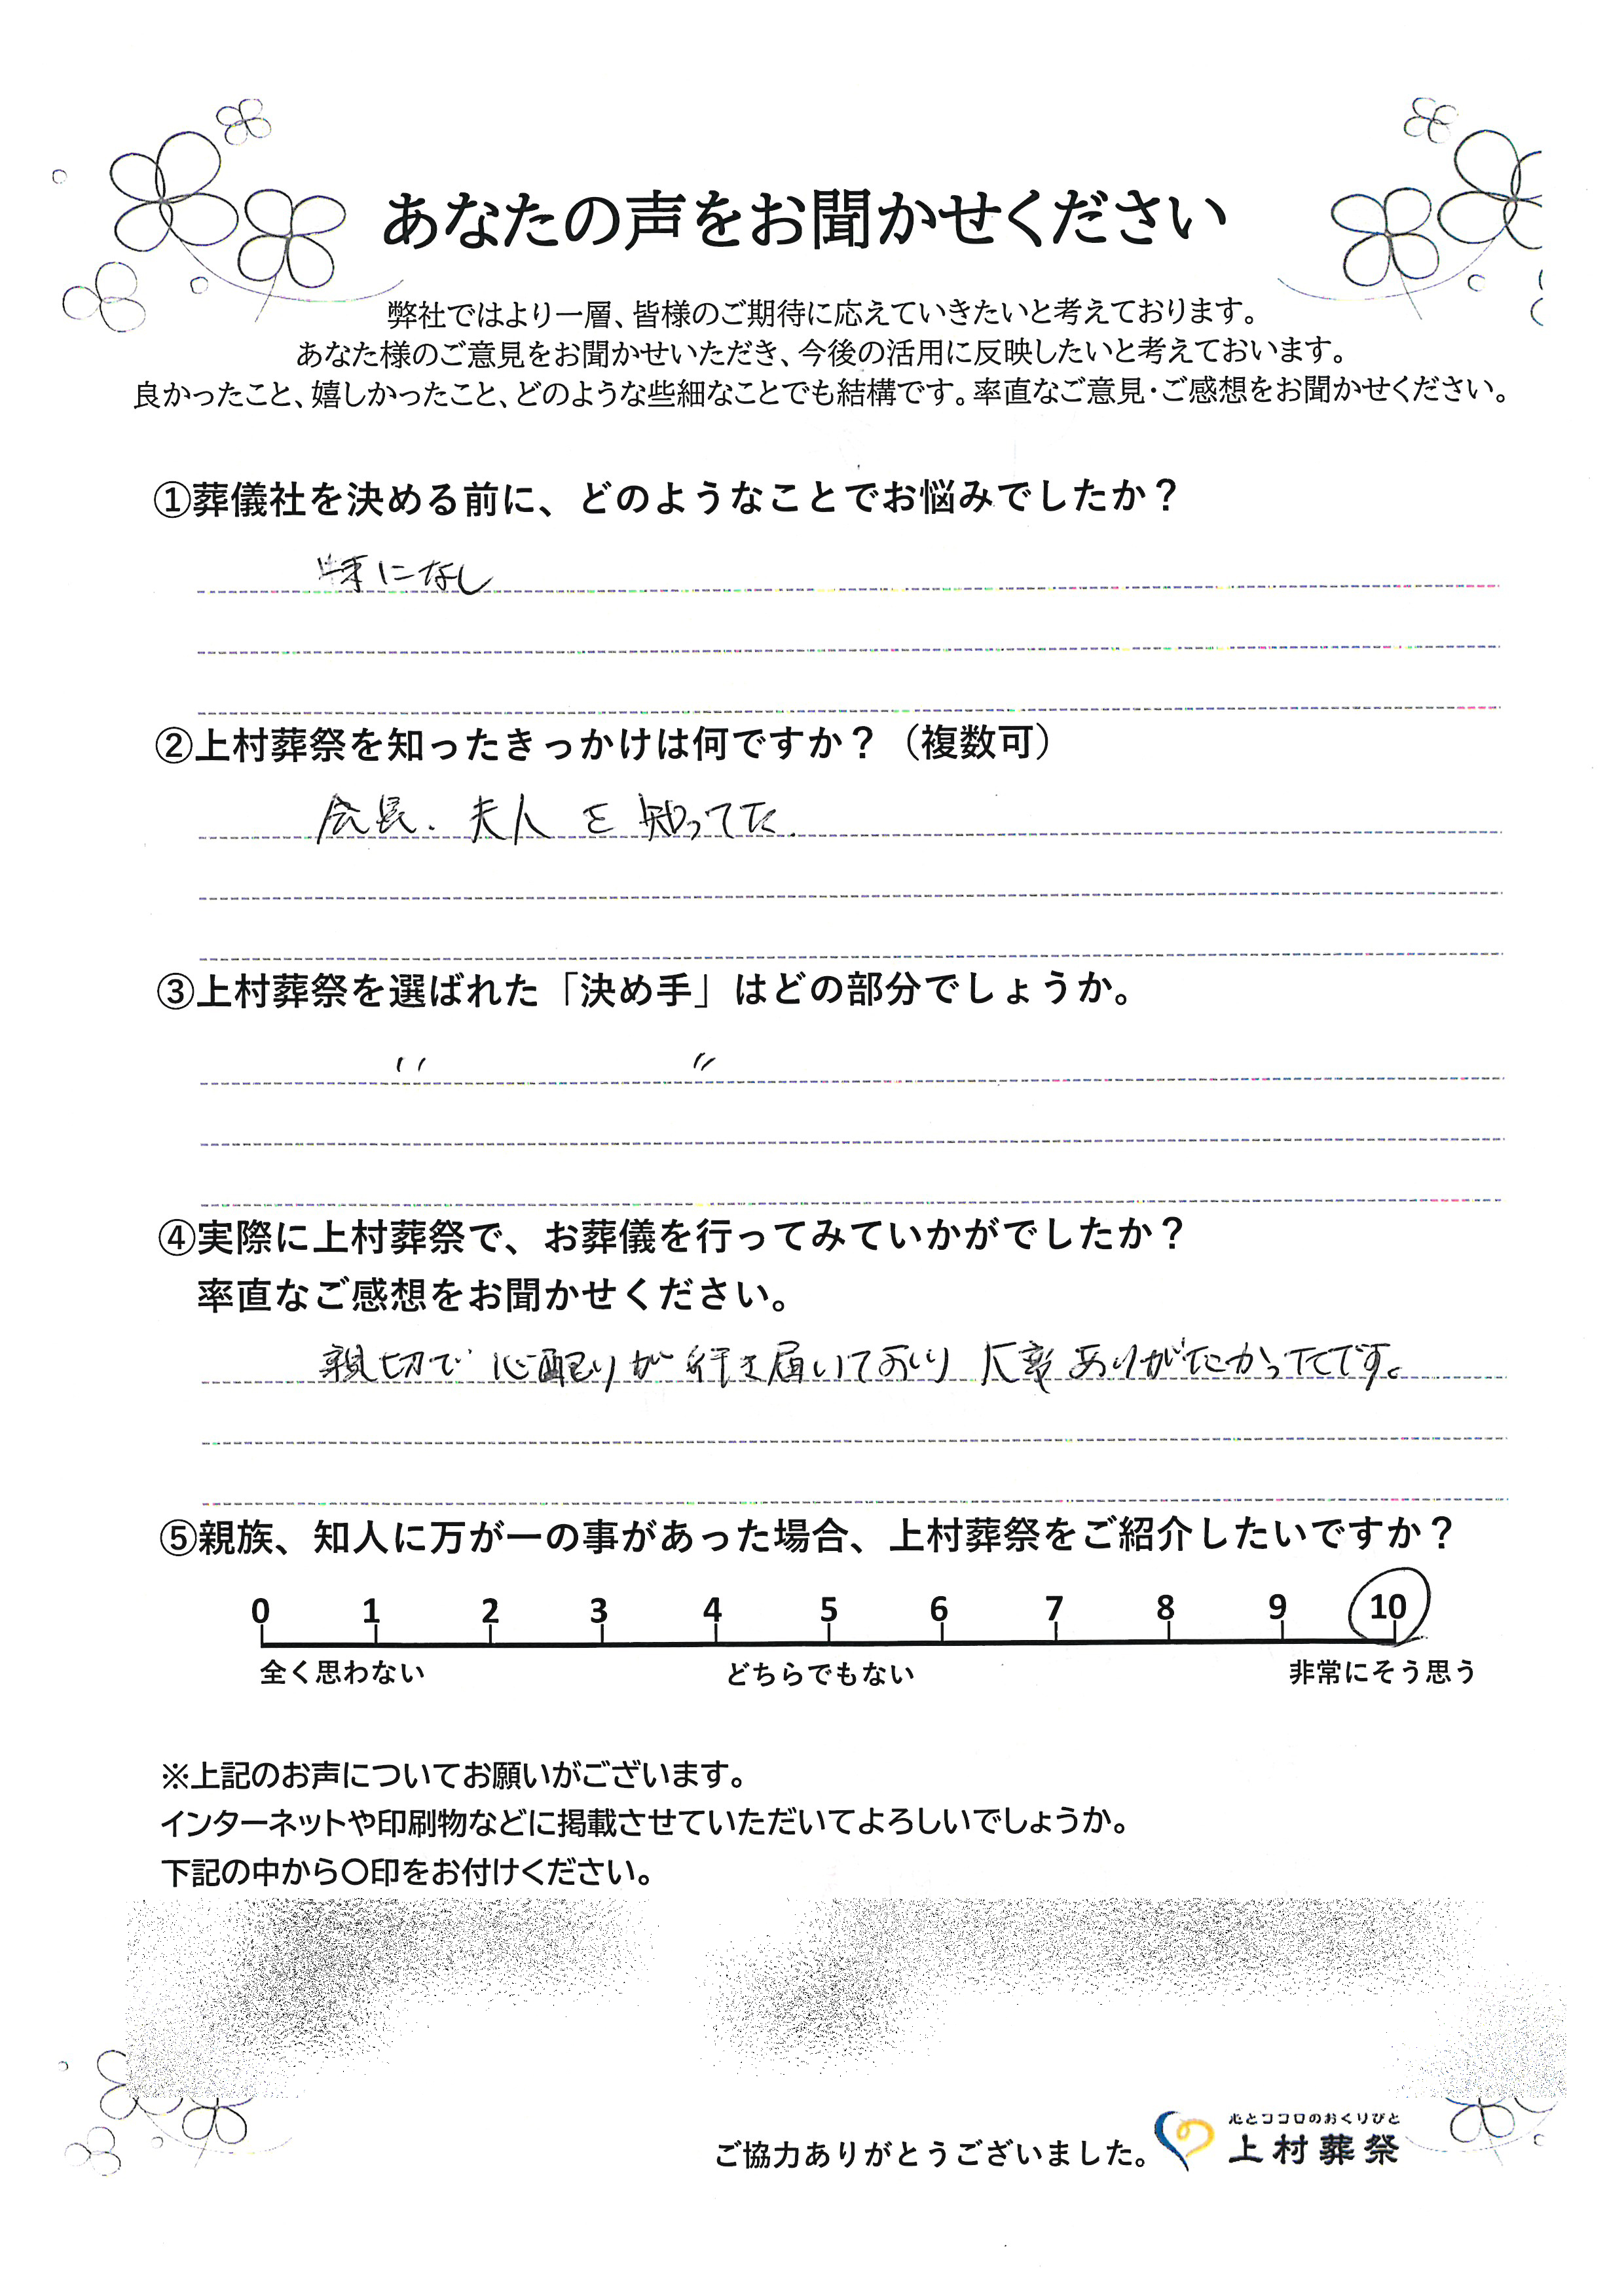 あなたの声をお聞かせください
弊社ではより一層、皆様のご期待に応えていきたいと考えております。
あなた様のご意見をお聞かせいただき、今後の活用に反映したいと考えておいます。
良かったこと、嬉しかったこと、どのような些細なことでも結構です。率直なご意見・ご感想をお聞かせください。
①葬儀社を決める前に、どのようなことでお悩みでしたか？
特になし
②上村葬祭を知ったきっかけは何ですか？（複数可）
会長．夫人を知ってた．
③上村葬祭を選ばれた「決め手」はどの部分でしょうか。
〃 〃
④実際に上村葬祭で、お葬儀を行ってみていかがでしたか？
率直なご感想をお聞かせください。
親切で心配りが行き届いており大変ありがたかったです。
⑤親族、知人に万が一の事があった場合、上村葬祭をご紹介したいですか？
0 1 2 3 4 5 6 7 8 9 10
全く思わない どちらでもない 非常にそう思う
※上記のお声についてお願いがございます。
インターネットや印刷物などに掲載させていただいてよろしいでしょうか。
下記の中から〇印をお付けください。
心とココロのおくりびと
ご協力ありがとうございました。 上村葬祭